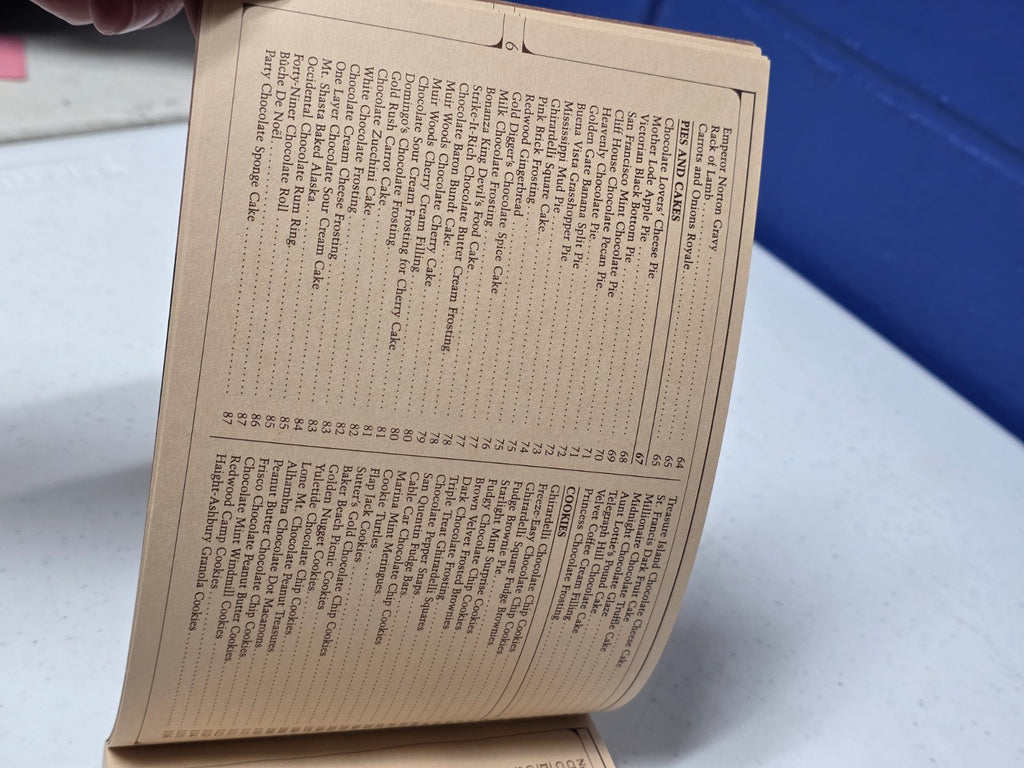 6
Emperor Norton Gravy 64
Rack of Lamb 65
Carrots and Onions Royale 65
PIES AND CAKES 67
Chocolate Lovers' Cheese Pie 68
Mother Lode Apple Pie 69
Victorian Black Bottom Pie 70
San Francisco Mint Chocolate Pie 71
Cliff House Chocolate Pecan Pie 71
Heavenly Chocolate Pie 72
Golden Gate Banana Split Pie 72
Buena Vista Grasshopper Pie 73
Mississippi Mud Pie 74
Ghirardelli Square Cake 75
Pink Brick Frosting 75
Redwood Gingerbread 76
Gold Digger's Chocolate Spice Cake 77
Milk Chocolate Frosting 77
Bonanza King Devil's Food Cake 78
Strike-It-Rich Chocolate Butter Cream Frosting 78
Chocolate Baron Bundt Cake 79
Muir Woods Chocolate Cherry Cake 80
Muir Woods Cherry Cream Filling 80
Chocolate Sour Cream Frosting for Cherry Cake 81
Domingo's Chocolate Frosting 81
Gold Rush Carrot Cake 82
Chocolate Zucchini Cake 82
White Chocolate Frosting 83
Chocolate Cream Cheese Frosting 83
One Layer Chocolate Sour Cream Cake 84
Mt. Shasta Baked Alaska 85
Occidental Chocolate Rum Ring 85
Forty-Niner Chocolate Roll 86
Bûche De Noël 87
Party Chocolate Sponge Cake 87
Treasure Island Chocolate Cheese Cake
St. Francis Dark Fruit Cake
Millionaire's Chocolate Truffle Cake
Midnight Chocolate Cake
Aunt Lottie's Pound Cake
Telegraph Hill Chocolate Glaze
Velvet Coffee Cream Filling
Princess Chocolate Frosting
COOKIES
Ghirardelli Chocolate Chip Cookies
Freeze-Easy Chocolate Chip Cookies
Ghirardelli Square Fudge Brownies
Fudge Brownie Pie
Starlight Mint Surprise Cookies
Fudgy Chocolate Chip Cookies
Brown Velvet Frosted Brownies
Dark Chocolate Frosting
Triple Treat Ghirardelli Squares
Chocolate Pepper Snaps
San Quentin Fudge Bars
Cable Car Chocolate Chip Cookies
Marina Mint Meringues
Cookie Turtles
Flap Jack Cookies
Sutter's Gold Chocolate Chip Cookies
Baker Beach Picnic Cookies
Golden Nugget Cookies
Yuletide Chocolate Chip Cookies
Lone Mt. Chocolate Peanut Treasures
Alhambra Chocolate Dot Macaroons
Peanut Butter Chocolate Chip Cookies
Frisco Chocolate Peanut Butter Cookies
Chocolate Mint Windmill Cookies
Redwood Camp Cookies
Haight-Ashbury Granola Cookies